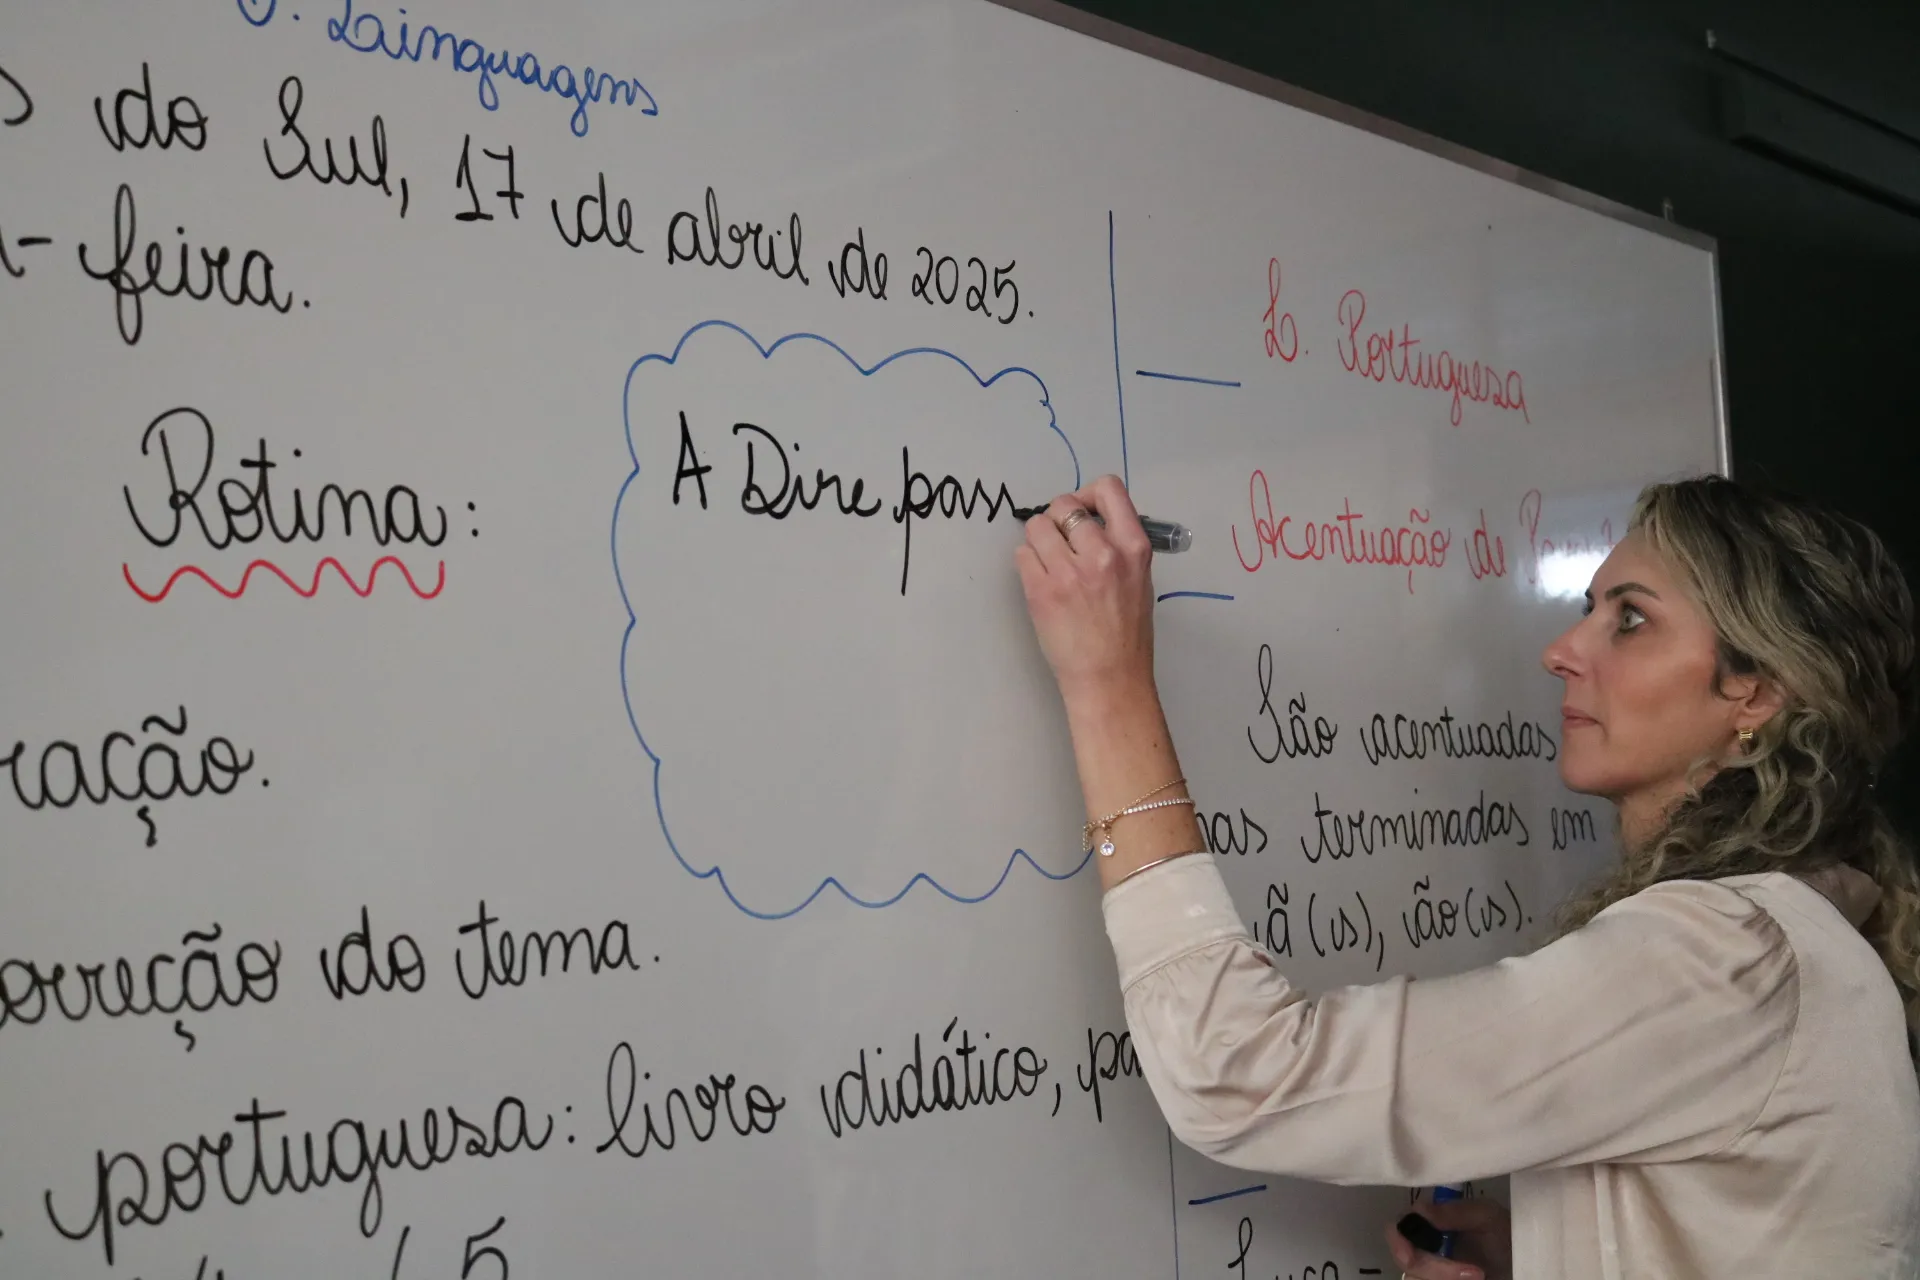 J. Lainguagens
s do Sul, 17 de abril de 2025.
- feira.
Rotina:
A Dire pass
ração.
orreção do tema.
portuguesa: livro didático, pa
5
L. Portuguesa
Acentuação de
São acentuadas
nas terminadas em
ã (s), ão (s).